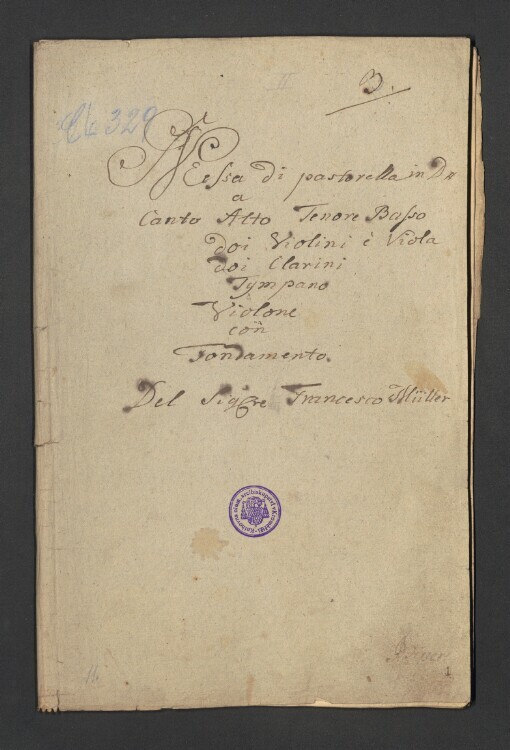 B.
329
Messa di pastorella in D#
a
Canto Alto Tenore Basso
doi Violini è Viola
doi Clarini
Tÿmpano
Violone
con
Fondamento.
Del Sigre Francesco Müller